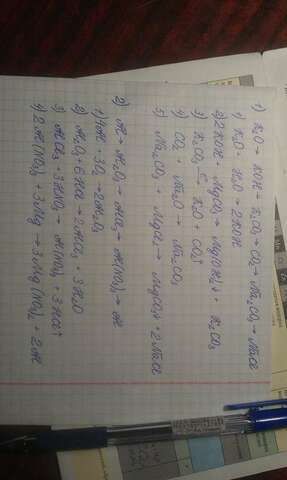 1) K₂O → KOH → K₂CO₃ → CO₂ → Na₂CO₃ → NaCl
1) K₂O + H₂O → 2KOH
2) 2KOH + MgCO₃ → Mg(OH)₂↓ + K₂CO₃
3) K₂CO₃ K₂O + CO₂↑
4) CO₂ + Na₂O → Na₂CO₃
5) Na₂CO₃ + MgCl₂ → MgCO₃↓ + 2NaCl
2) Al → Al₂O₃ → AlCl₃ → Al(NO₃)₃ → Al
1) 4Al + 3O₂ → 2Al₂O₃
2) Al₂O₃ + 6HCl → 2AlCl₃ + 3H₂O
3) AlCl₃ + 3HNO₃ → Al(NO₃)₃ + 3HCl↑
4) 2Al(NO₃)₃ + 3Mg → 3Mg(NO₃)₂ + 2Al